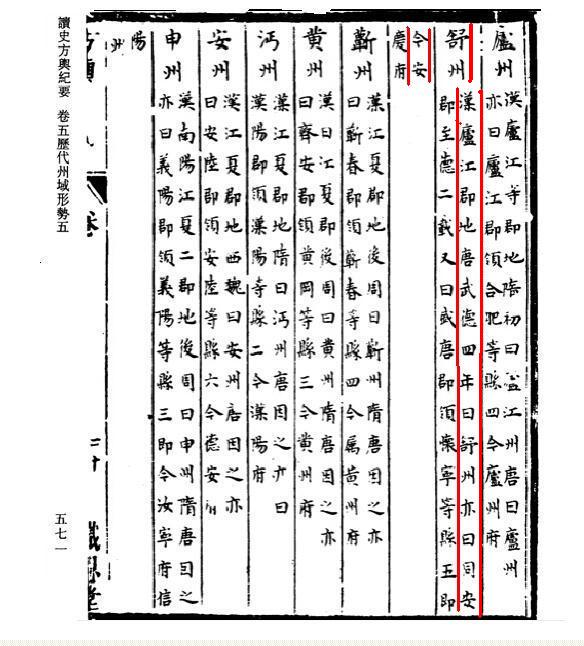 廬州
漢廬江等郡地隋初曰廬江州唐曰廬州
亦曰廬江郡領合肥等縣四今廬州府
舒州
漢廬江郡地唐武德四年曰舒州亦曰同安
郡至德二載又曰盛唐郡領懷寧等縣五即
今安
慶府
蘄州
漢江夏郡地後周曰蘄州隋唐因之亦
曰蘄春郡領蘄春等縣四今屬黃州府
黃州
漢曰江夏郡後周曰黃州隋唐因之亦
曰齊安郡領黃岡等縣三今黃州府
沔州
漢江夏郡地隋曰沔州唐因之亦曰
漢陽郡領漢陽等縣二今漢陽府
安州
漢江夏郡地西魏曰安州唐因之亦
曰安陸郡領安陸等縣六今德安府
申州
漢南陽江夏二郡地後周曰申州隋唐因之
亦曰義陽郡領義陽等縣三即今汝寧府信
陽
州
卷
二十
讀史方輿紀要 卷五歷代州域形勢五
五七一